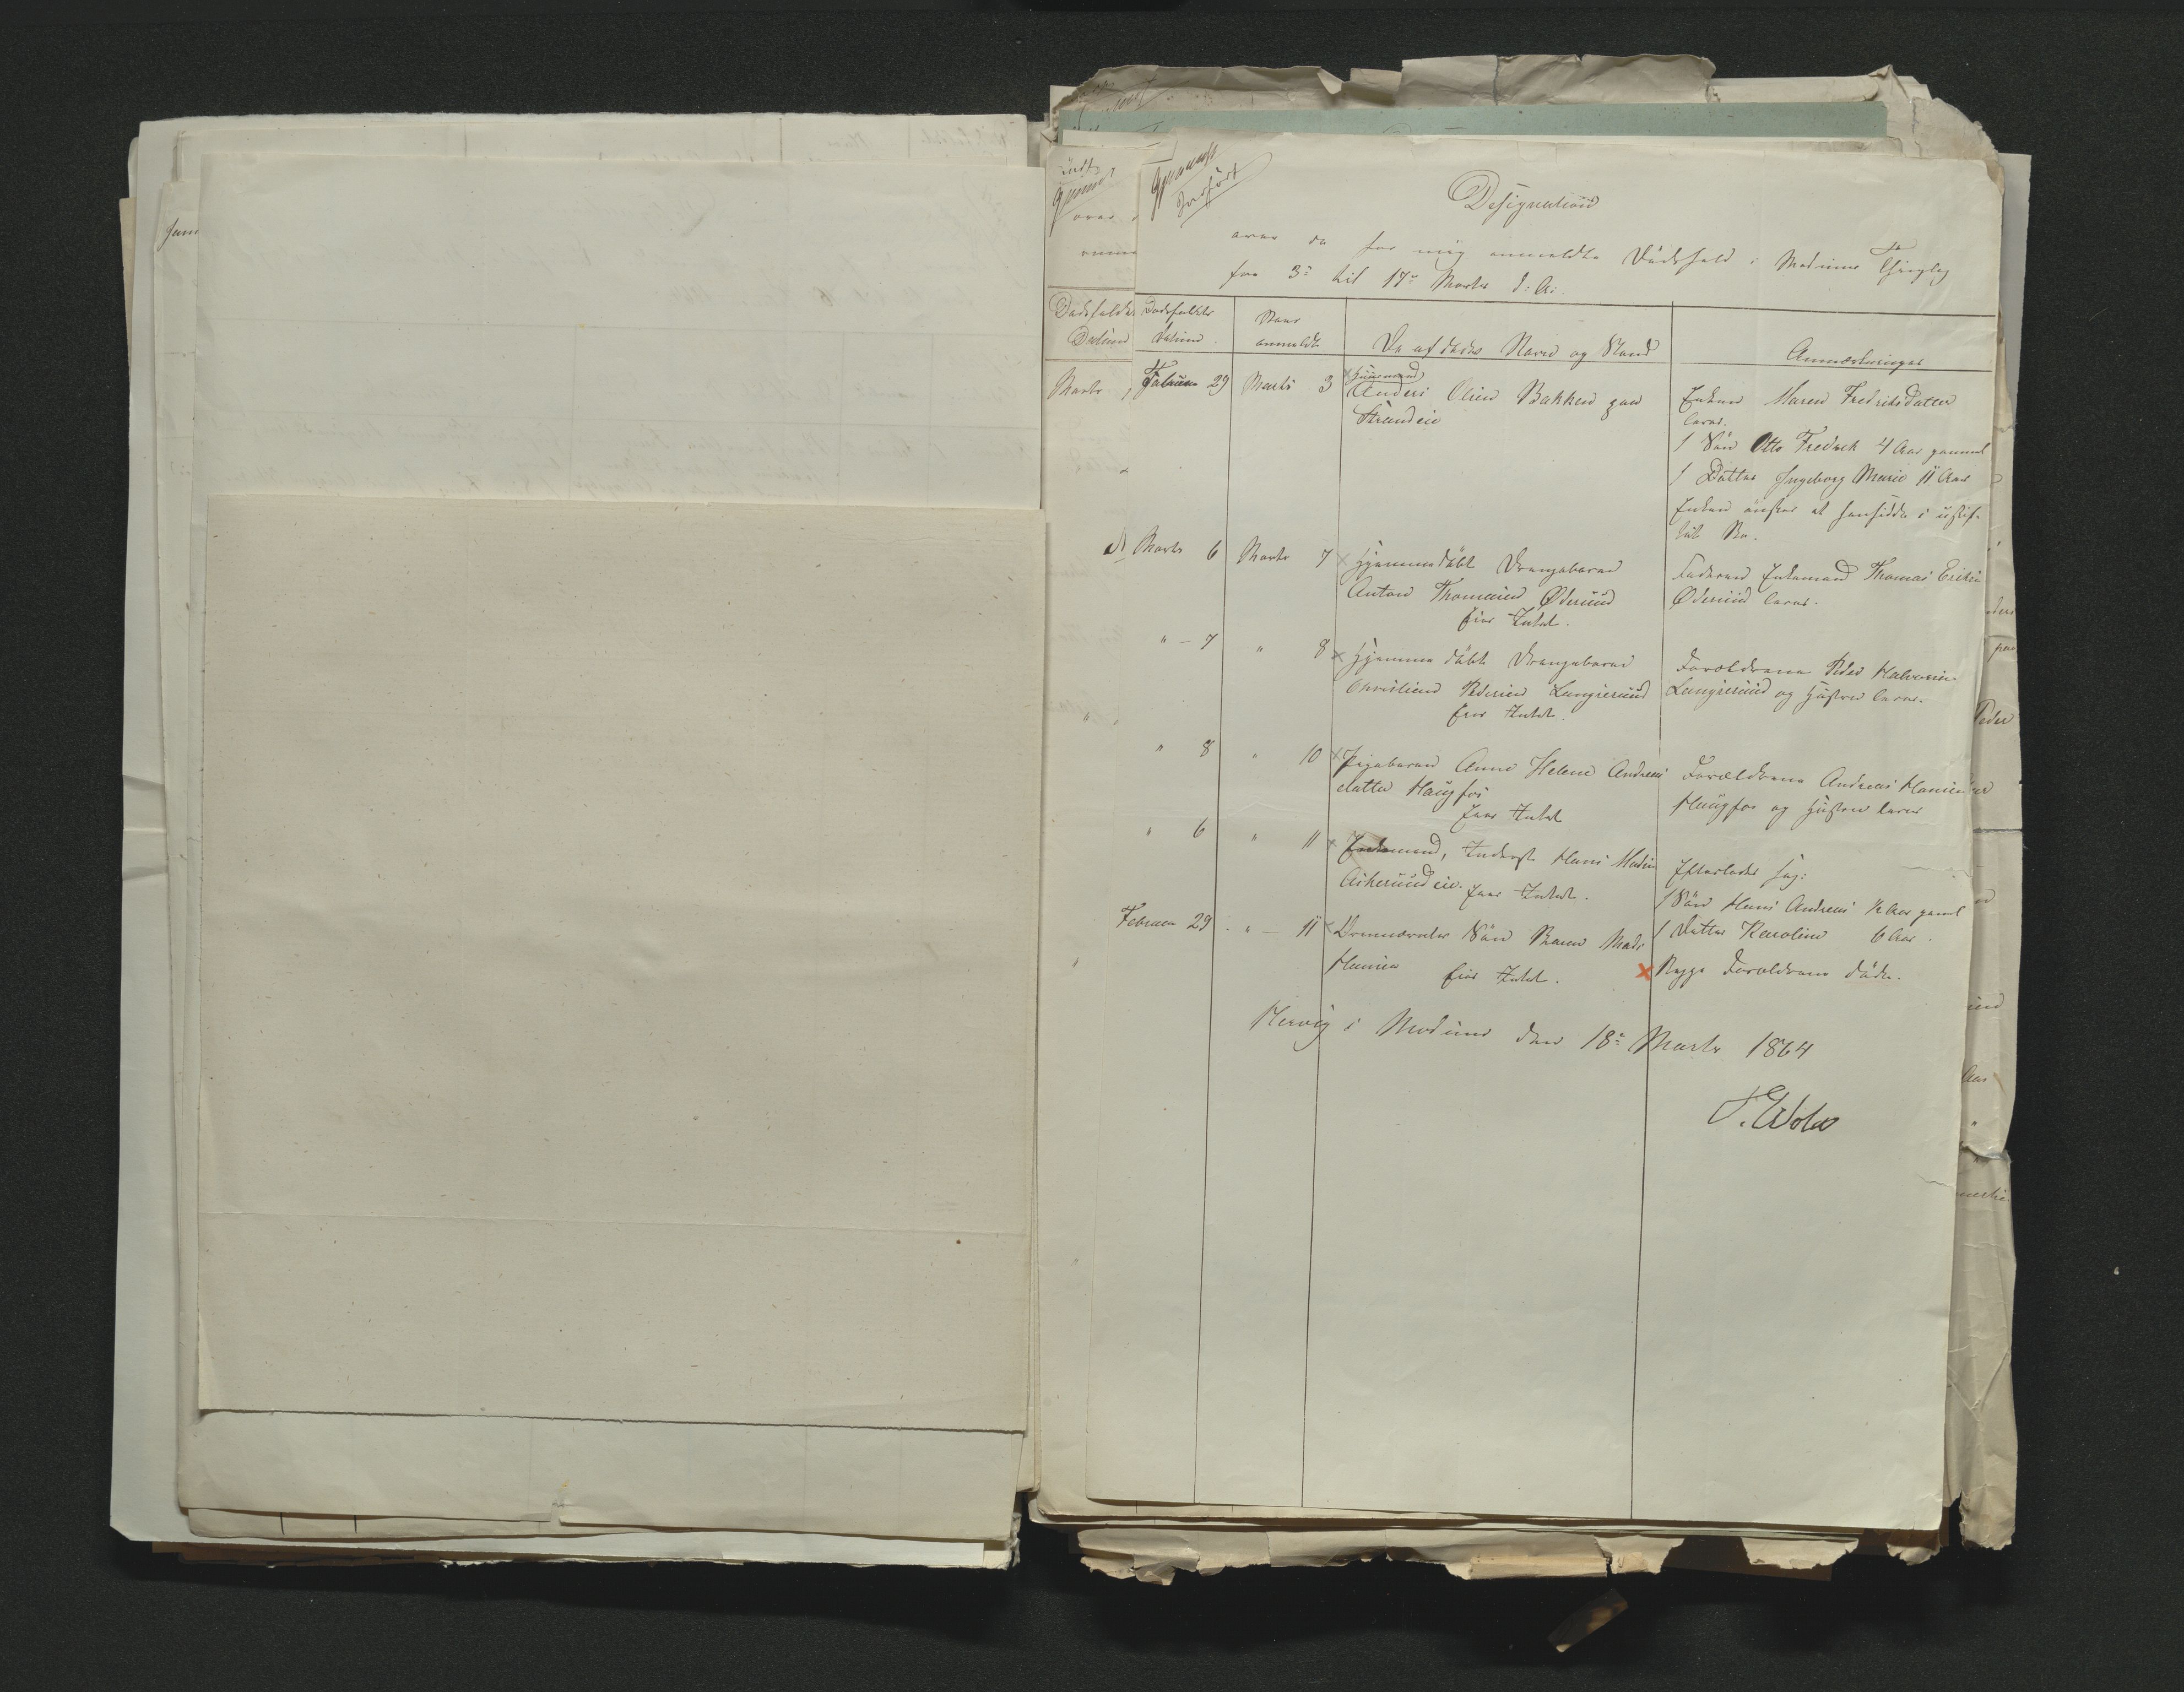 Gjennemgt
Indført
Designation
over de for mig anmeldte Dødsfald i Modums Thinglag
fra 3die til 17de Marts d: A:
Dødsfaldets Datum
Naar anmeldt
De afdødes Navn og Stand
Anmærkninger
Februar 29 Marts 3 Huusmand
Anders Olsen Bakken paa
Strandeie
Enken Maren Fredriksdatter
lever.
1 Søn Otto Fredrek 4 Aar gammel
1 Datter Ingeborg Marie 11 Aar
Enken ønsker at hensidde i uskif-
tet Bo.
Marts 6 Marts 7 Hjemmedøbt Drengebarn
Anton Thomesen Øderud
Eier Intet.
Faderen Enkemand Thomas Eriksen
Øderud lever.
" - 7 " 8 Hjemme døbt Drengebarn
Christian Pedersen Langserud
Eier Intet.
Forældrene Peder Halvorsen
Langserud og Hustru lever.
" 8 " 10 Pigebarn Anne Helene Andreas
datter Haugfos
Eier Intet
Forældrene Andreas Hansen
Haugfos og Hustru lever
" 6 " 11 Enkemand, Inderst Hans Madsen
Askerudeie. Eier Intet.
Efterlader sig:
1 Søn Hans Andreas 12 Aar gaml
1 Datter Karoline 6 Aar.
Februar 29 " - 11 Søn Mads
Hansen Eier Intet.
Begge Forældrene døde.
Heovig i Modum den 18de Marts 1864
T. Wold